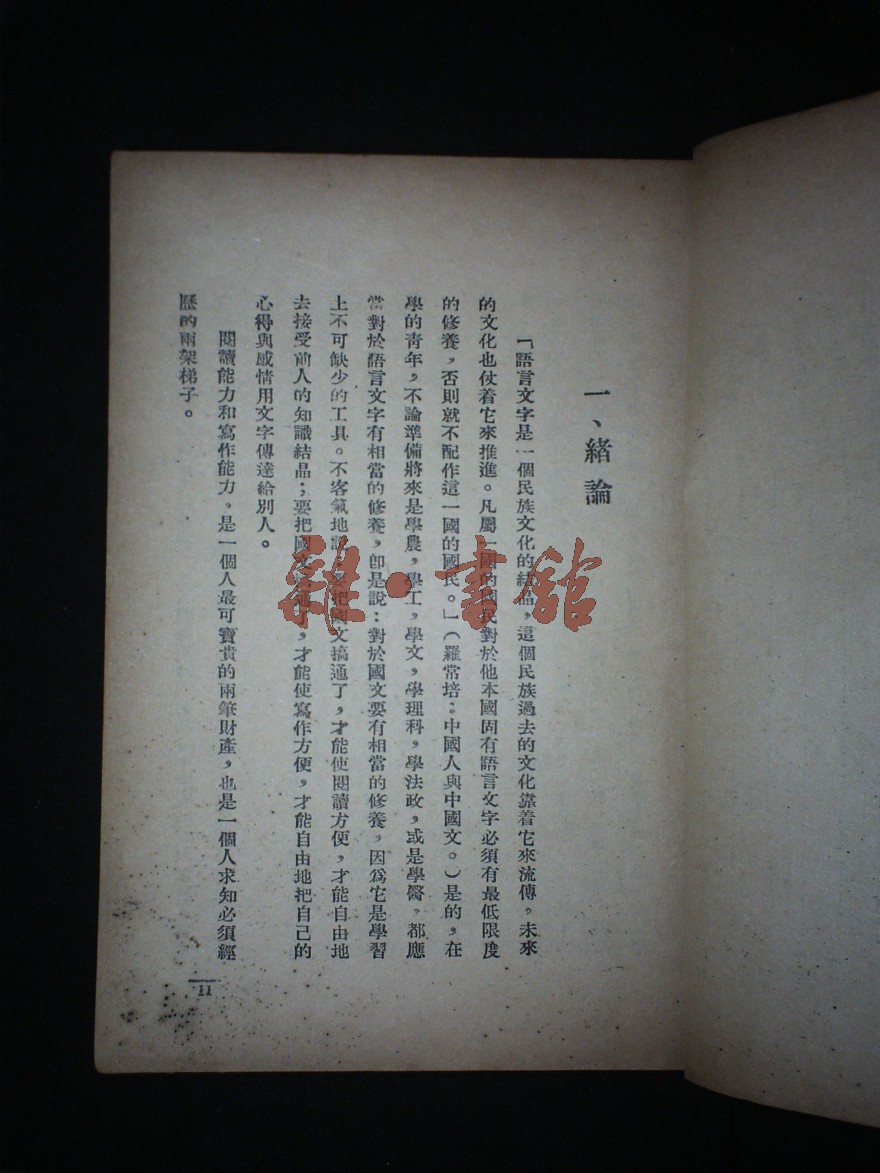 一、緒論
「語言文字是一個民族文化的結晶，這個民族過去的文化靠着它來流傳，未來
的文化也仗着它來推進。凡屬一國的國民對於他本國固有語言文字必須有最低限度
的修養，否則就不配作這一國的國民。」（羅常培：中國人與中國文。）是的，在
學的青年，不論準備將來是學農，學工，學文，學理科，學法政，或是學醫，都應
當對於語言文字有相當的修養，卽是說：對於國文要有相當的修養，因爲它是學習
上不可缺少的工具。不客氣地說：要把國文搞通了，才能使閱讀方便，才能自由地
去接受前人的知識結晶；要把國文搞通了，才能使寫作方便，才能自由地把自己的
心得與感情用文字傳達給別人。
閱讀能力和寫作能力，是一個人最可寶貴的兩筆財產，也是一個人求知必須經
歷的兩架梯子。
11
雜·書館